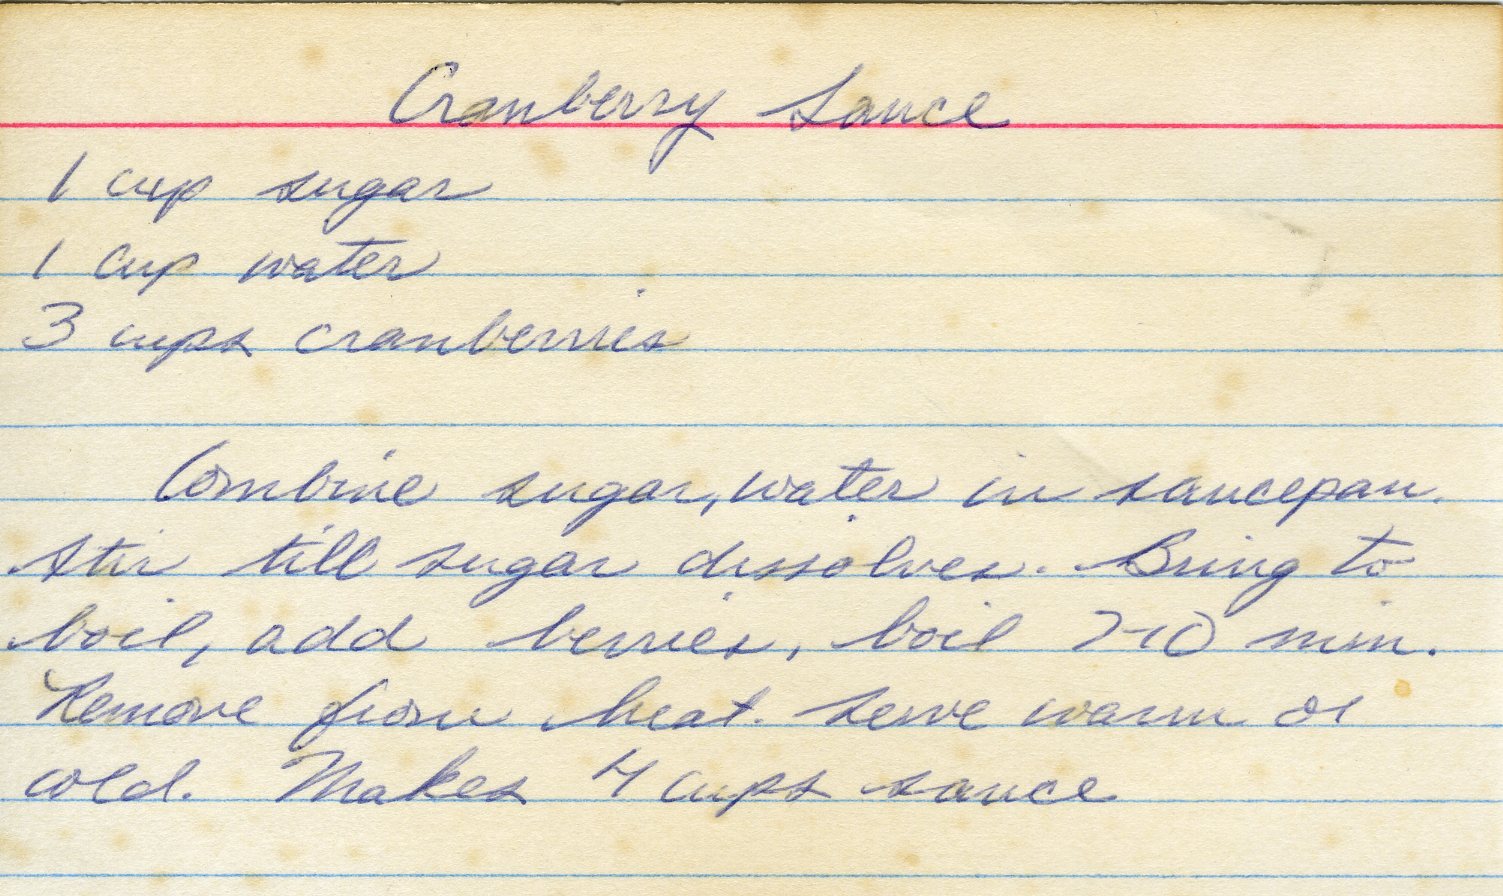 Cranberry Sauce
1 cup sugar
1 cup water
3 cups cranberries
Combine sugar, water in saucepan.
Stir till sugar dissolves. Bring to
boil, add berries, boil 7-10 min.
Remove from heat. Serve warm or
cold. Makes 4 cups sauce